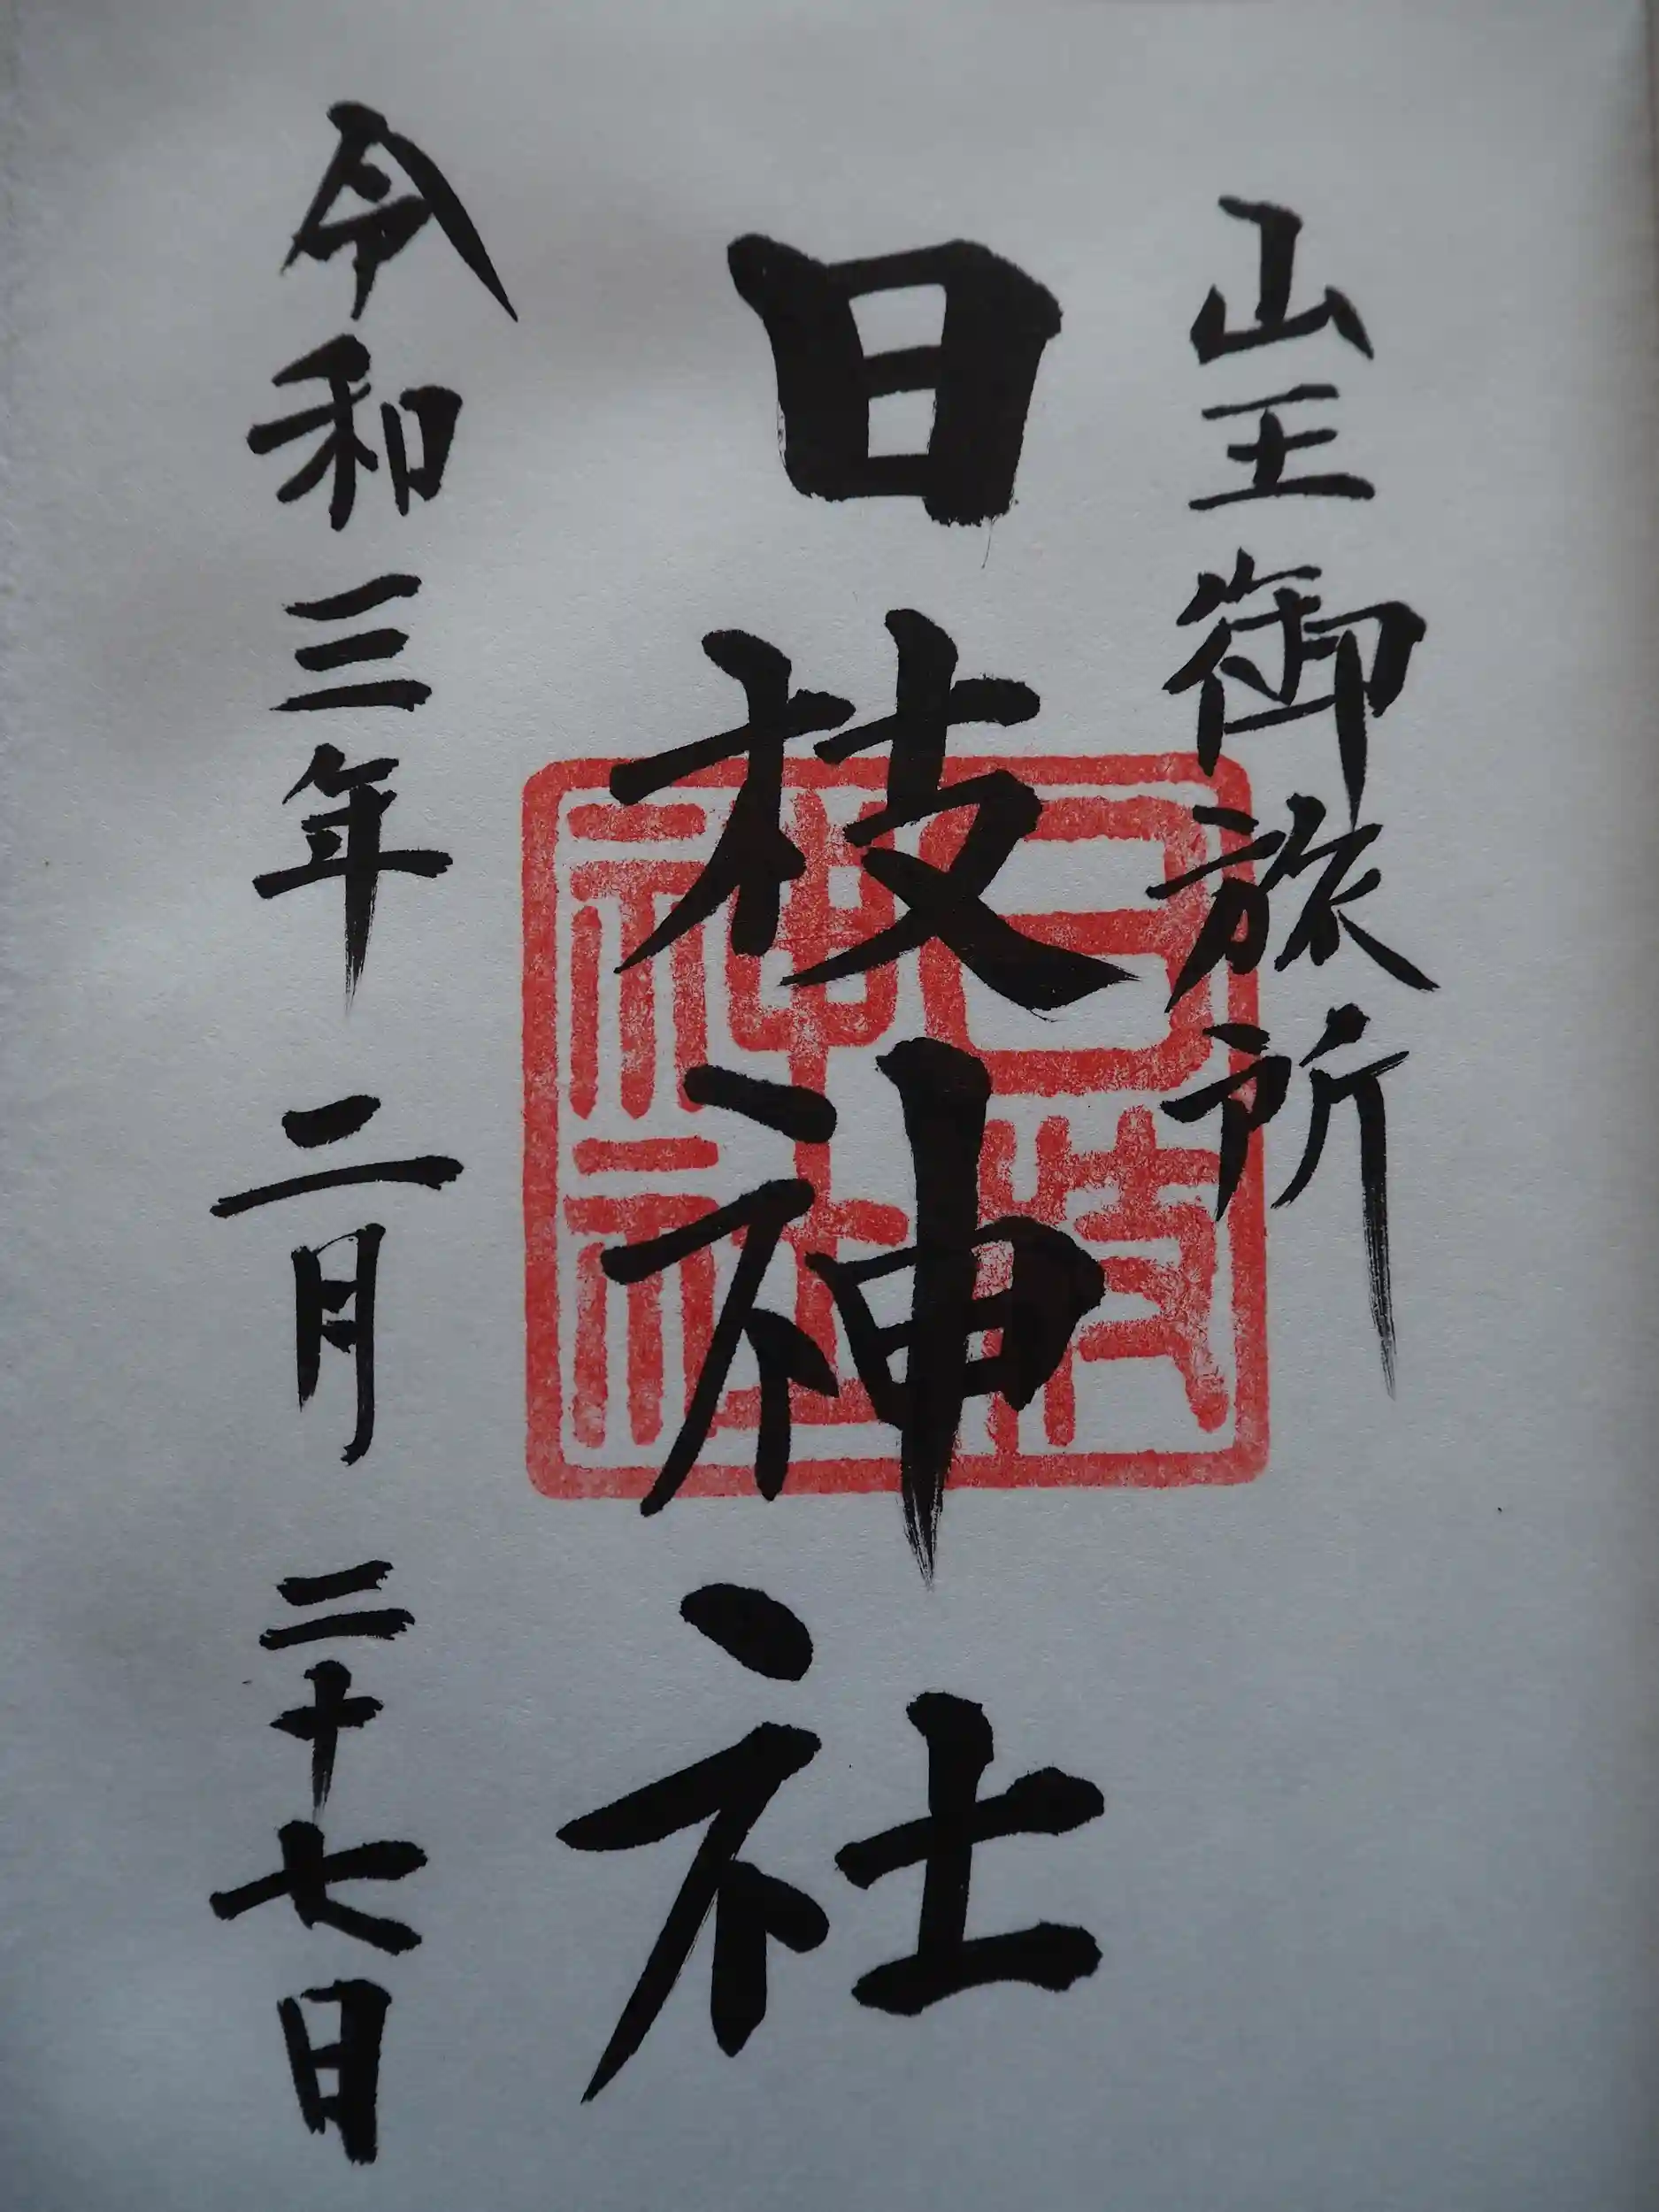 山王御旅所
日枝神社
令和三年二月二十七日
日枝
神社